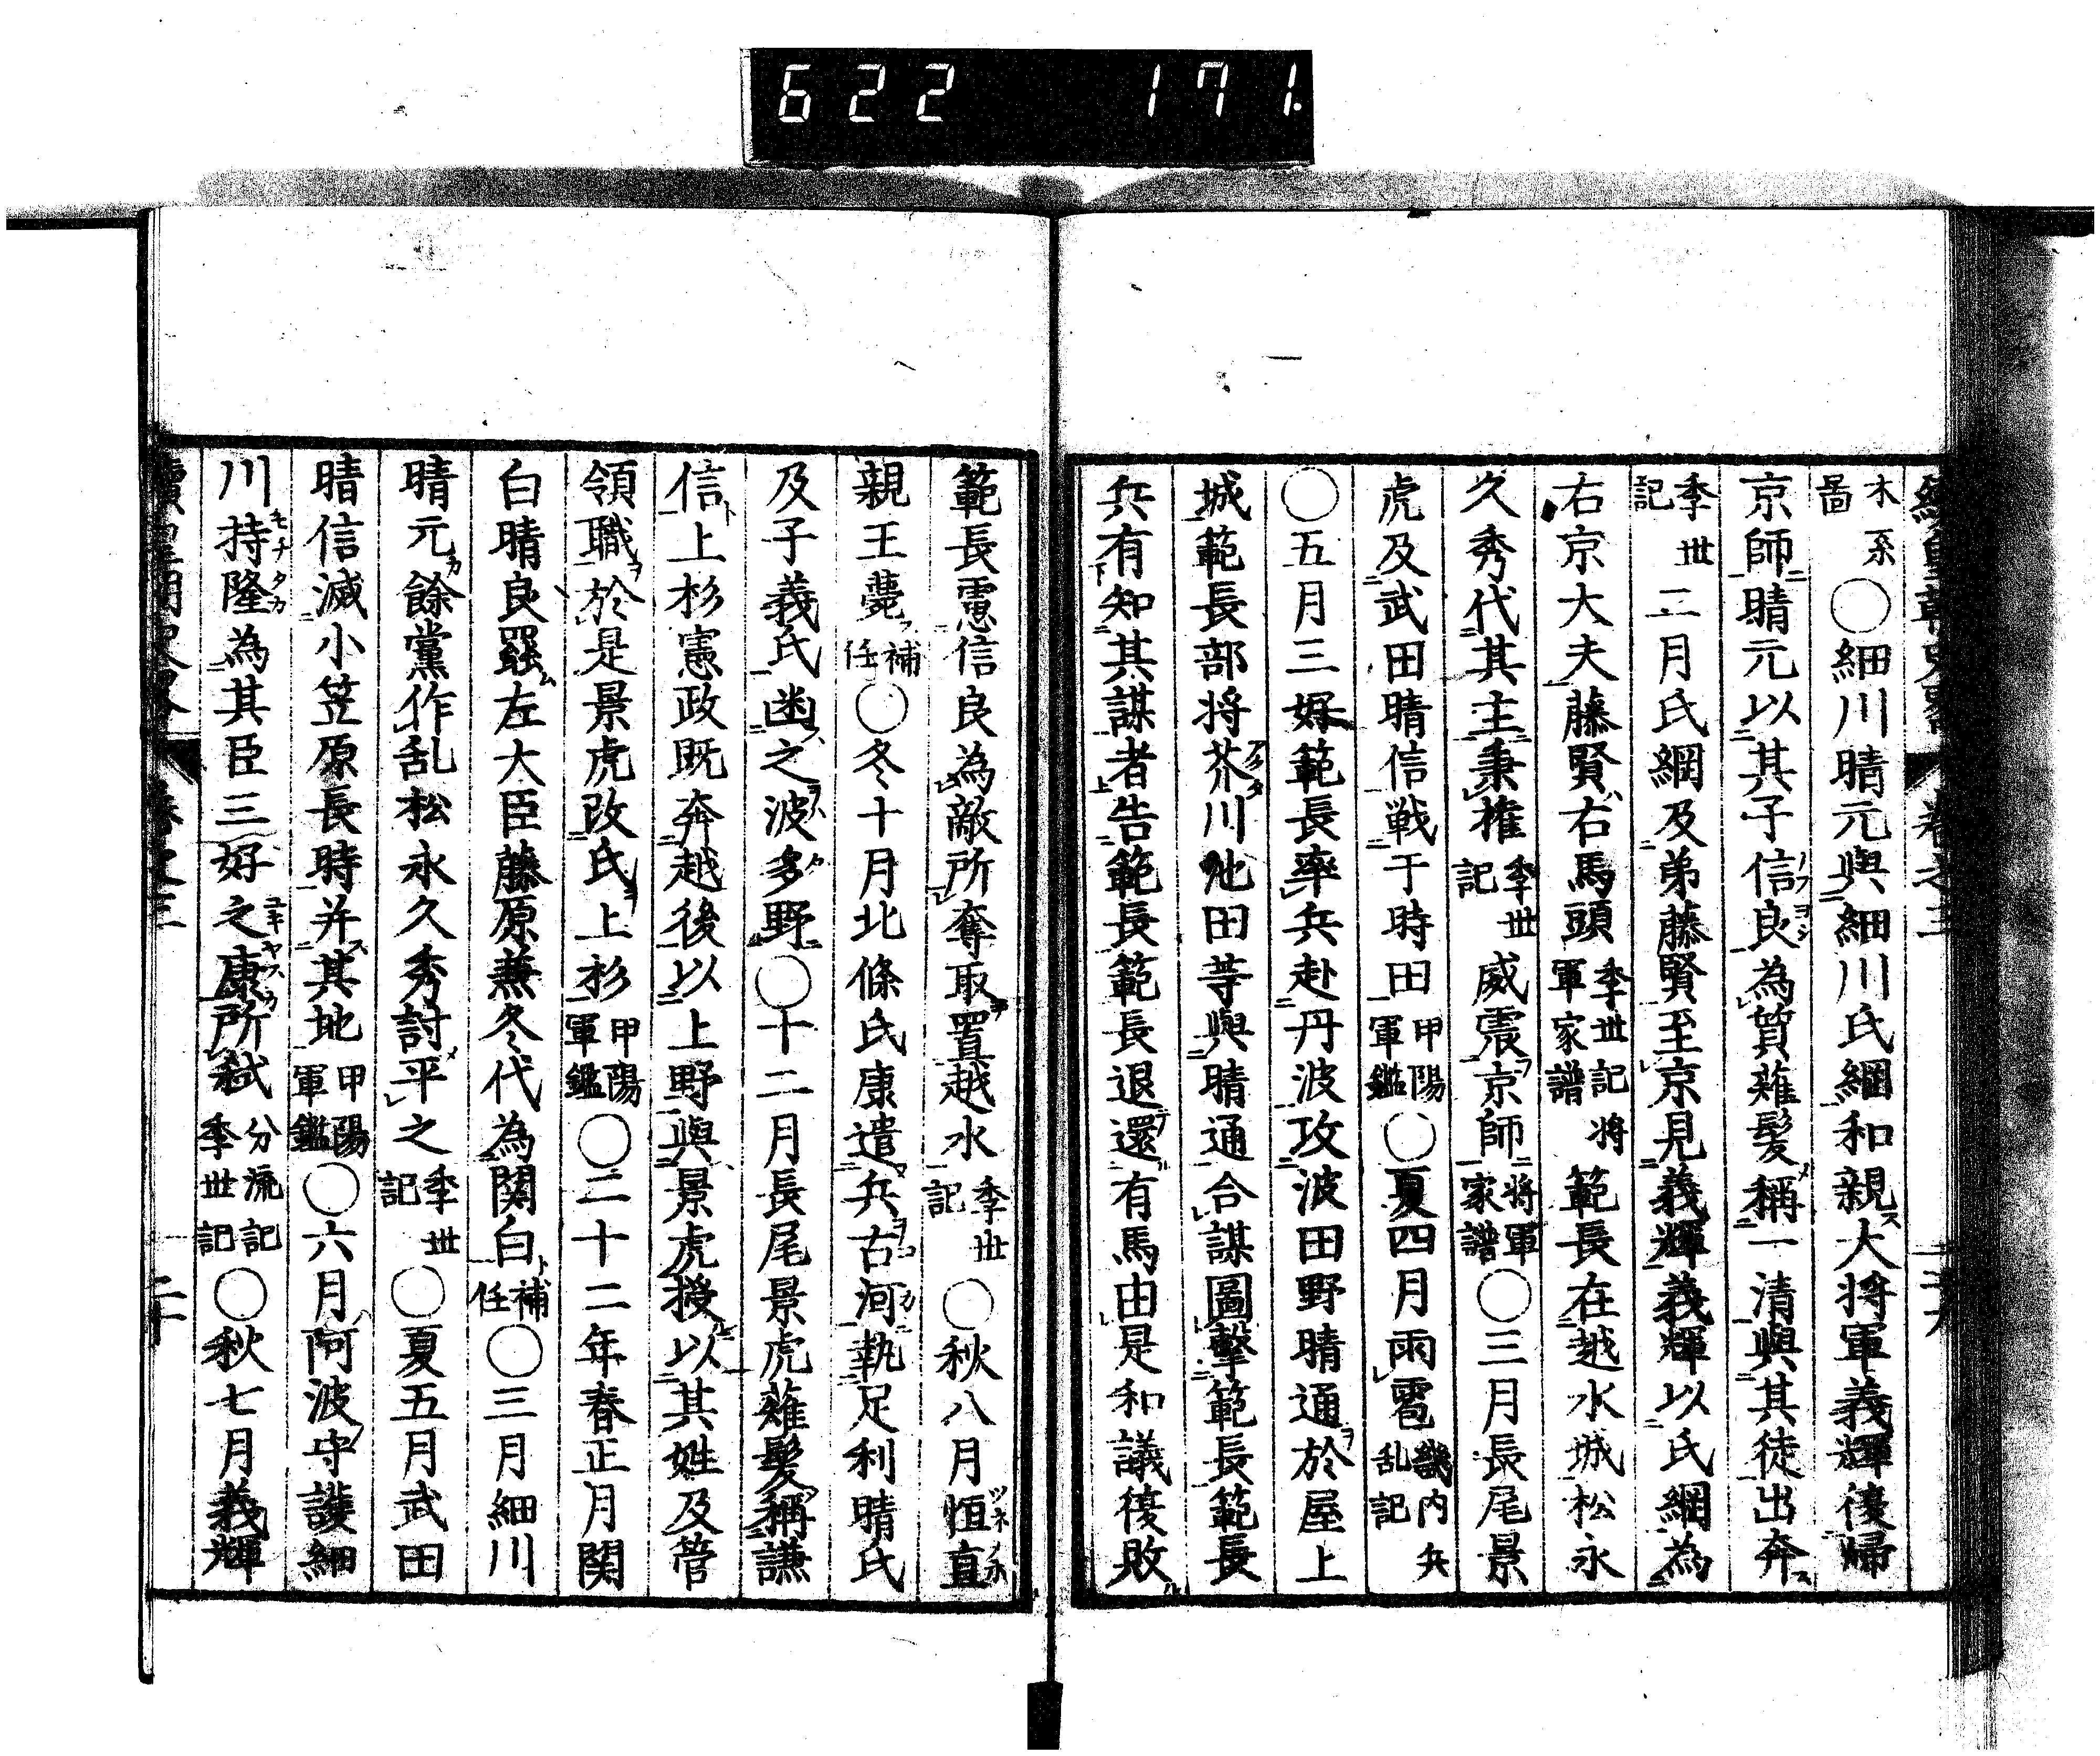 622 171.
木系圖○細川晴元與細川氏綱和親大将軍義輝復歸
京師晴元以其子信良為質薙髪稱一清與其徒出奔
季世記二月氏綱及弟藤賢至京見義輝義輝以氏綱為
右京大夫藤賢右馬頭季世記将軍家譜範長在越水城松永
久秀代其主秉権季世記威震京師将軍家譜○三月長尾景
虎及武田晴信戦于時田甲陽軍鑑○夏四月雨雹畿内兵乱記
○五月三好範長率兵赴丹波攻波田野晴通於屋上
城範長部将芥川池田等與晴通合謀圖擊範長範長
兵有知其謀者告範長範長退還有馬由是和議復敗
範長慮信良為敵所奪取置越水季世記○秋八月恒直
親王薨補任○冬十月北條氏康遣兵古河執足利晴氏
及子義氏幽之波多野○十二月長尾景虎薙髪稱謙
信上杉憲政既奔越後以上野與景虎授以其姓及管
領職於是景虎改氏上杉甲陽軍鑑○二十二年春正月関
白晴良罷左大臣藤原兼冬代為関白補任○三月細川
晴元餘黨作乱松永久秀討平之季世記○夏五月武田
晴信滅小笠原長時并其地甲陽軍鑑○六月阿波守護細
川持隆為其臣三好之康所弑分流記季世記○秋七月義輝